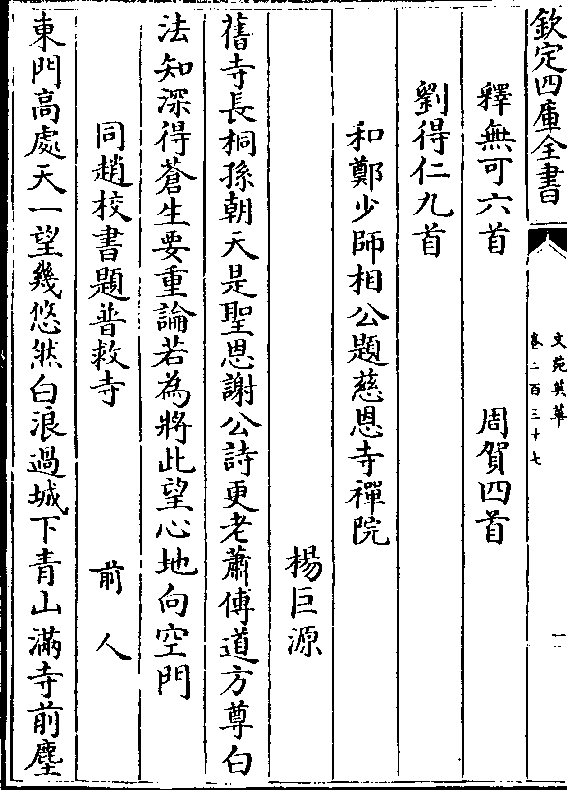 欽定四庫全書
文苑英華
卷二百三十七
一
釋無可六首　周賀四首
劉得仁九首
和鄭少師相公題慈恩寺禪院
楊巨源
舊寺長桐孫朝天是聖恩謝公詩更老蕭傅道方尊白
法知深得蒼生要重論若為將此望心地向空門
同趙校書題普救寺　前人
東門高處天一望幾悠然白浪過城下青山滿寺前塵